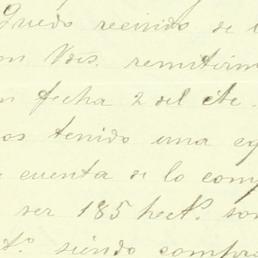 Quedo recivido de l
on Vds. remitirm
n fecha 2 del cte.
os tenido una eq
e cuenta de lo com
ser 185 hectº. son
tº. siendo compr